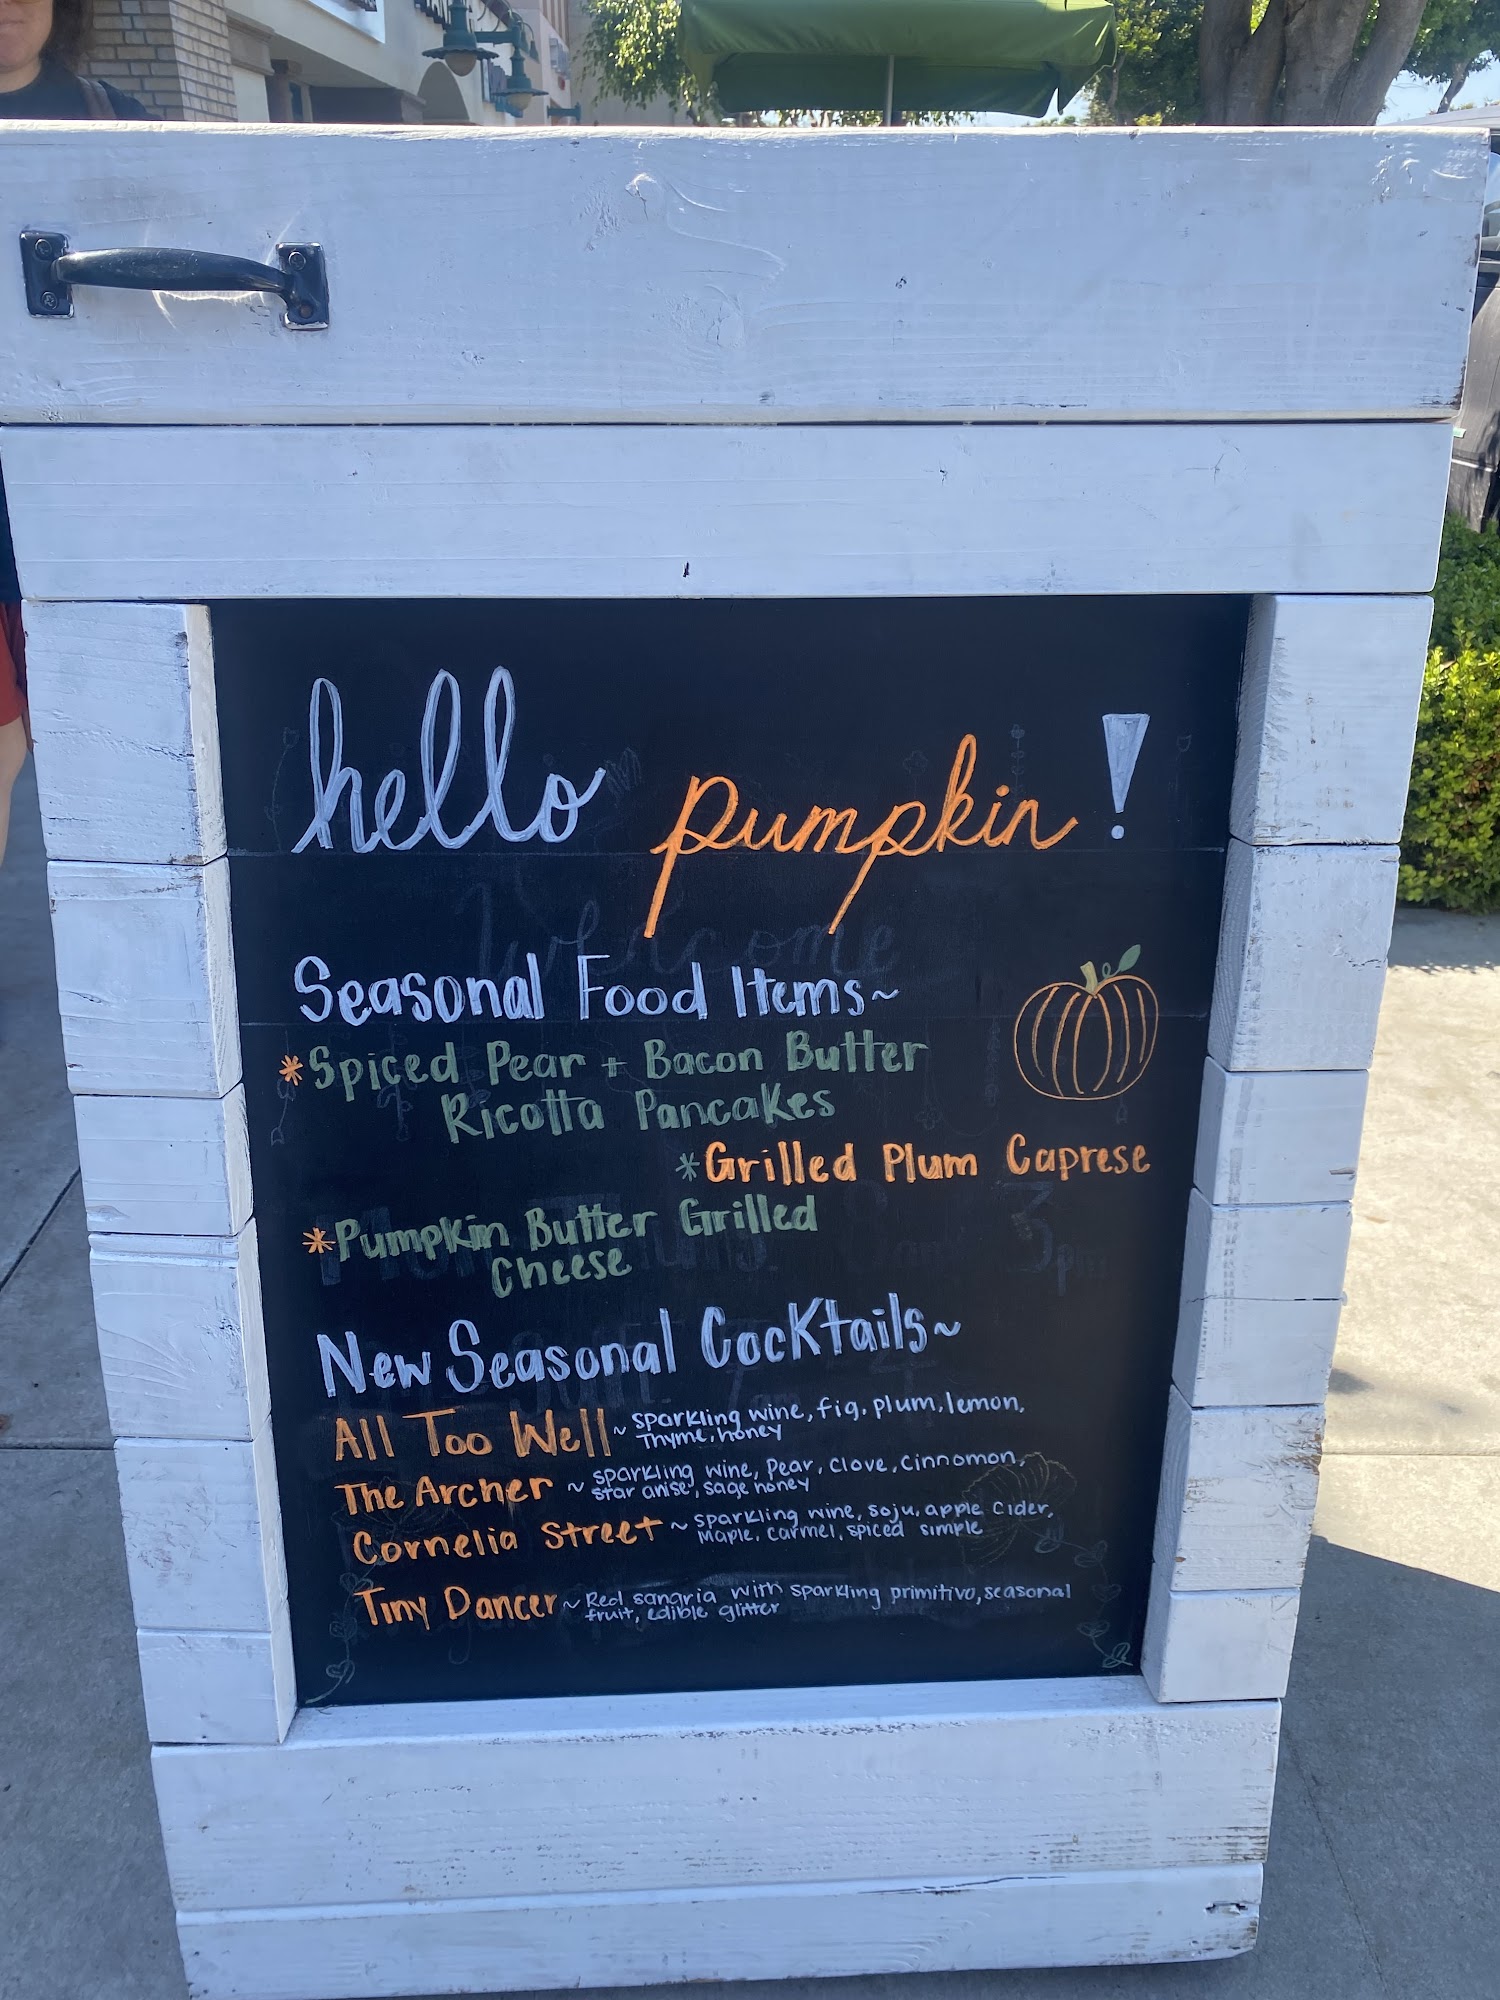 hello pumpkin!
Seasonal Food Items~
*Spiced Pear + Bacon Butter
Ricotta Pancakes
*Grilled Plum Caprese
*Pumpkin Butter Grilled
Cheese
New Seasonal Cocktails~
All Too Well~ sparkling wine, fig, plum, lemon,
Thyme, honey
The Archer ~ sparkling wine, Pear, Clove, Cinnomon,
star anise, sage honey
Cornelia Street~ sparkling wine, soju, apple cider,
Maple, carmel, spiced simple
Tiny Dancer~ Red sangria with sparkling primitivo, seasonal
fruit, edible glitter